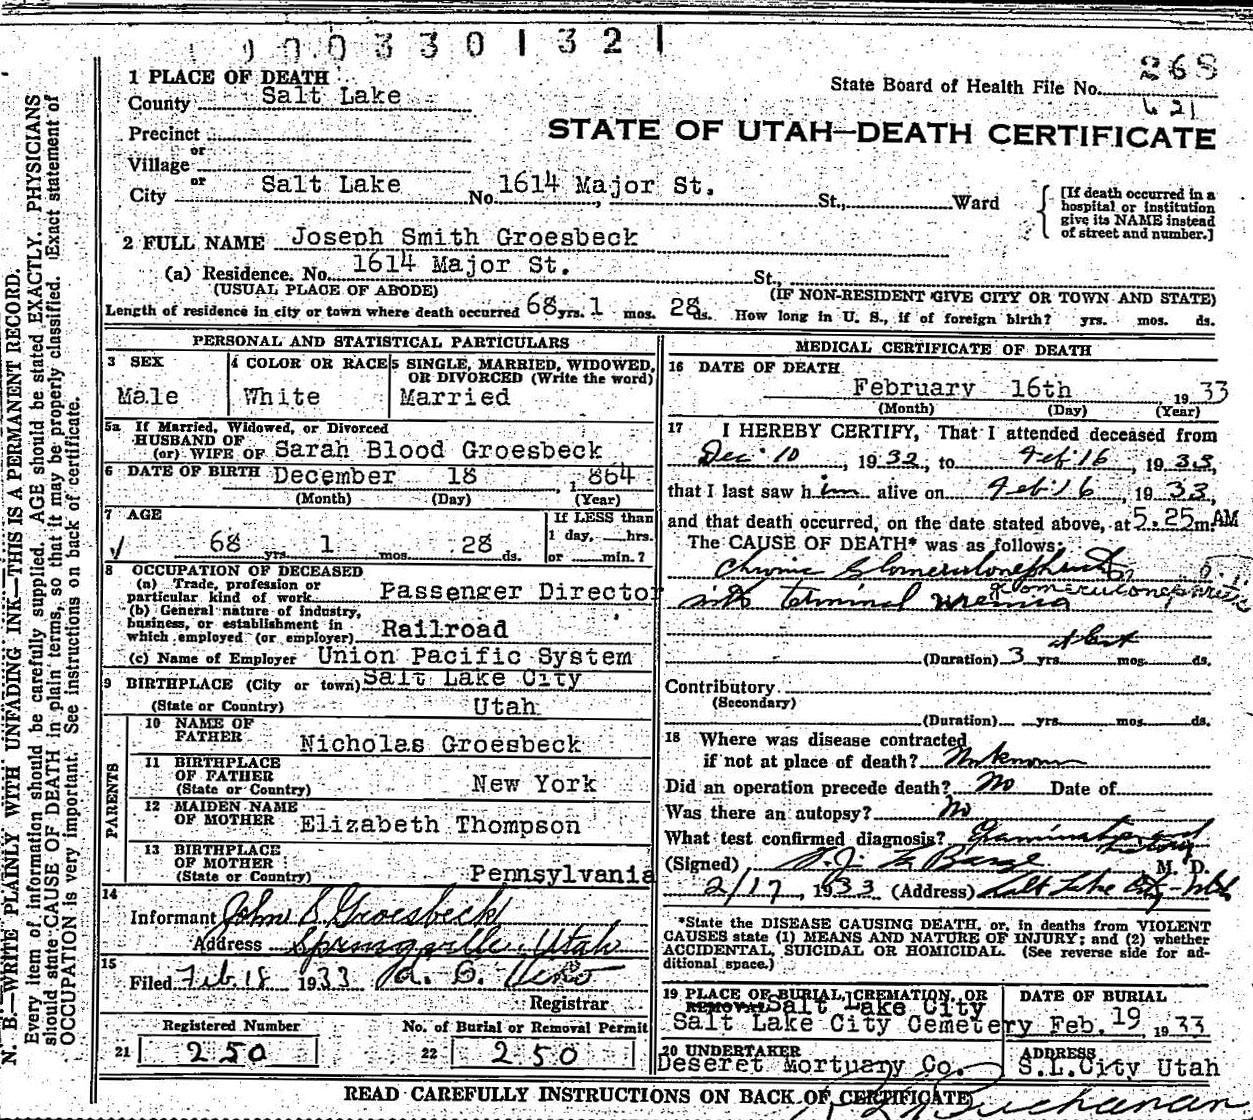 000330132
1 PLACE OF DEATH
County Salt Lake
State Board of Health File No. 268
621
STATE OF UTAH—DEATH CERTIFICATE
Precinct
or
Village
or
City Salt Lake No. 1614 Major St. St., Ward
[If death occurred in a hospital or institution give its NAME instead of street and number.]
2 FULL NAME Joseph Smith Groesbeck
(a) Residence. No. 1614 Major St. St.,
(USUAL PLACE OF ABODE) (IF NON-RESIDENT GIVE CITY OR TOWN AND STATE)
Length of residence in city or town where death occurred 68 yrs. 1 mos. 28 ds. How long in U. S., if of foreign birth? yrs. mos. ds.
PERSONAL AND STATISTICAL PARTICULARS
3 SEX
Male
4 COLOR OR RACE
White
5 SINGLE, MARRIED, WIDOWED, OR DIVORCED (Write the word)
Married
5a If Married, Widowed, or Divorced
HUSBAND OF
(or) WIFE OF Sarah Blood Groesbeck
6 DATE OF BIRTH December 18 , 1864
(Month) (Day) (Year)
7 AGE
68 yrs. 1 mos. 28 ds.
If LESS than
1 day, hrs.
or min.?
8 OCCUPATION OF DECEASED
(a) Trade, profession or
particular kind of work Passenger Director
(b) General nature of industry,
business, or establishment in
which employed (or employer) Railroad
(c) Name of Employer Union Pacific System
9 BIRTHPLACE (City or town) Salt Lake City
(State or Country) Utah
PARENTS
10 NAME OF
FATHER Nicholas Groesbeck
11 BIRTHPLACE
OF FATHER
(State or Country) New York
12 MAIDEN NAME
OF MOTHER Elizabeth Thompson
13 BIRTHPLACE
OF MOTHER
(State or Country) Pennsylvania
14
Informant John S. Groesbeck
Address Springville, Utah
15
Filed Feb. 18 1933
Registrar
Registered Number
21 250
No. of Burial or Removal Permit
22 250
MEDICAL CERTIFICATE OF DEATH
16 DATE OF DEATH
February 16th 1933
(Month) (Day) (Year)
17 I HEREBY CERTIFY, That I attended deceased from
Dec. 10, 1932, to Feb. 16, 1933,
that I last saw him alive on Feb. 16, 1933,
and that death occurred, on the date stated above, at 5.25 m. AM
The CAUSE OF DEATH* was as follows:
Chronic Glomerulonephritis
Glomerulonephritis
with terminal uremia
about
(Duration) 3 yrs. mos. ds.
Contributory
(Secondary)
(Duration) yrs. mos. ds.
18 Where was disease contracted
if not at place of death? Unknown
Did an operation precede death? No Date of
Was there an autopsy? No
What test confirmed diagnosis? Examination and
history
(Signed) La Barge M. D.
2/17, 1933 (Address) Salt Lake City Utah
*State the DISEASE CAUSING DEATH, or, in deaths from VIOLENT
CAUSES state (1) MEANS AND NATURE OF INJURY; and (2) whether
ACCIDENTAL, SUICIDAL OR HOMICIDAL. (See reverse side for ad-
ditional space.)
19 PLACE OF BURIAL, CREMATION, OR
REMOVAL Salt Lake City
Salt Lake City Cemetery
DATE OF BURIAL
Feb. 19 1933
20 UNDERTAKER
Deseret Mortuary Co.
ADDRESS
S.L.City Utah
READ CAREFULLY INSTRUCTIONS ON BACK OF CERTIFICATE
Buchanan
N. B.—WRITE PLAINLY WITH UNFADING INK—THIS IS A PERMANENT RECORD.
Every item of information should be carefully supplied. AGE should be stated EXACTLY. PHYSICIANS
should state CAUSE OF DEATH in plain terms, so that it may be properly classified. Exact statement of
OCCUPATION is very important. See instructions on back of certificate.